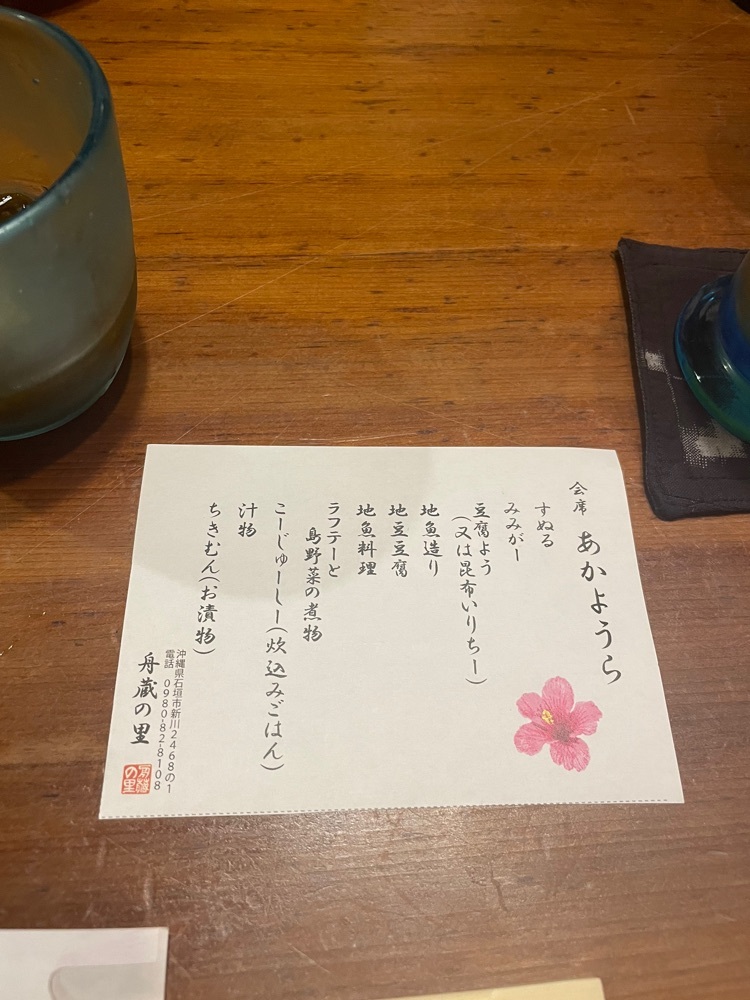 会席 あかようら
すぬる
みみがー
豆腐よう
(又は昆布いりちー)
地魚造り
地豆豆腐
地魚料理
ラフテーと
島野菜の煮物
こーじゅーしー(炊込みごはん)
汁物
ちきむん(お漬物)
沖縄県石垣市新川2468の1
電話 0980-82-8108
舟蔵の里
舟蔵の里